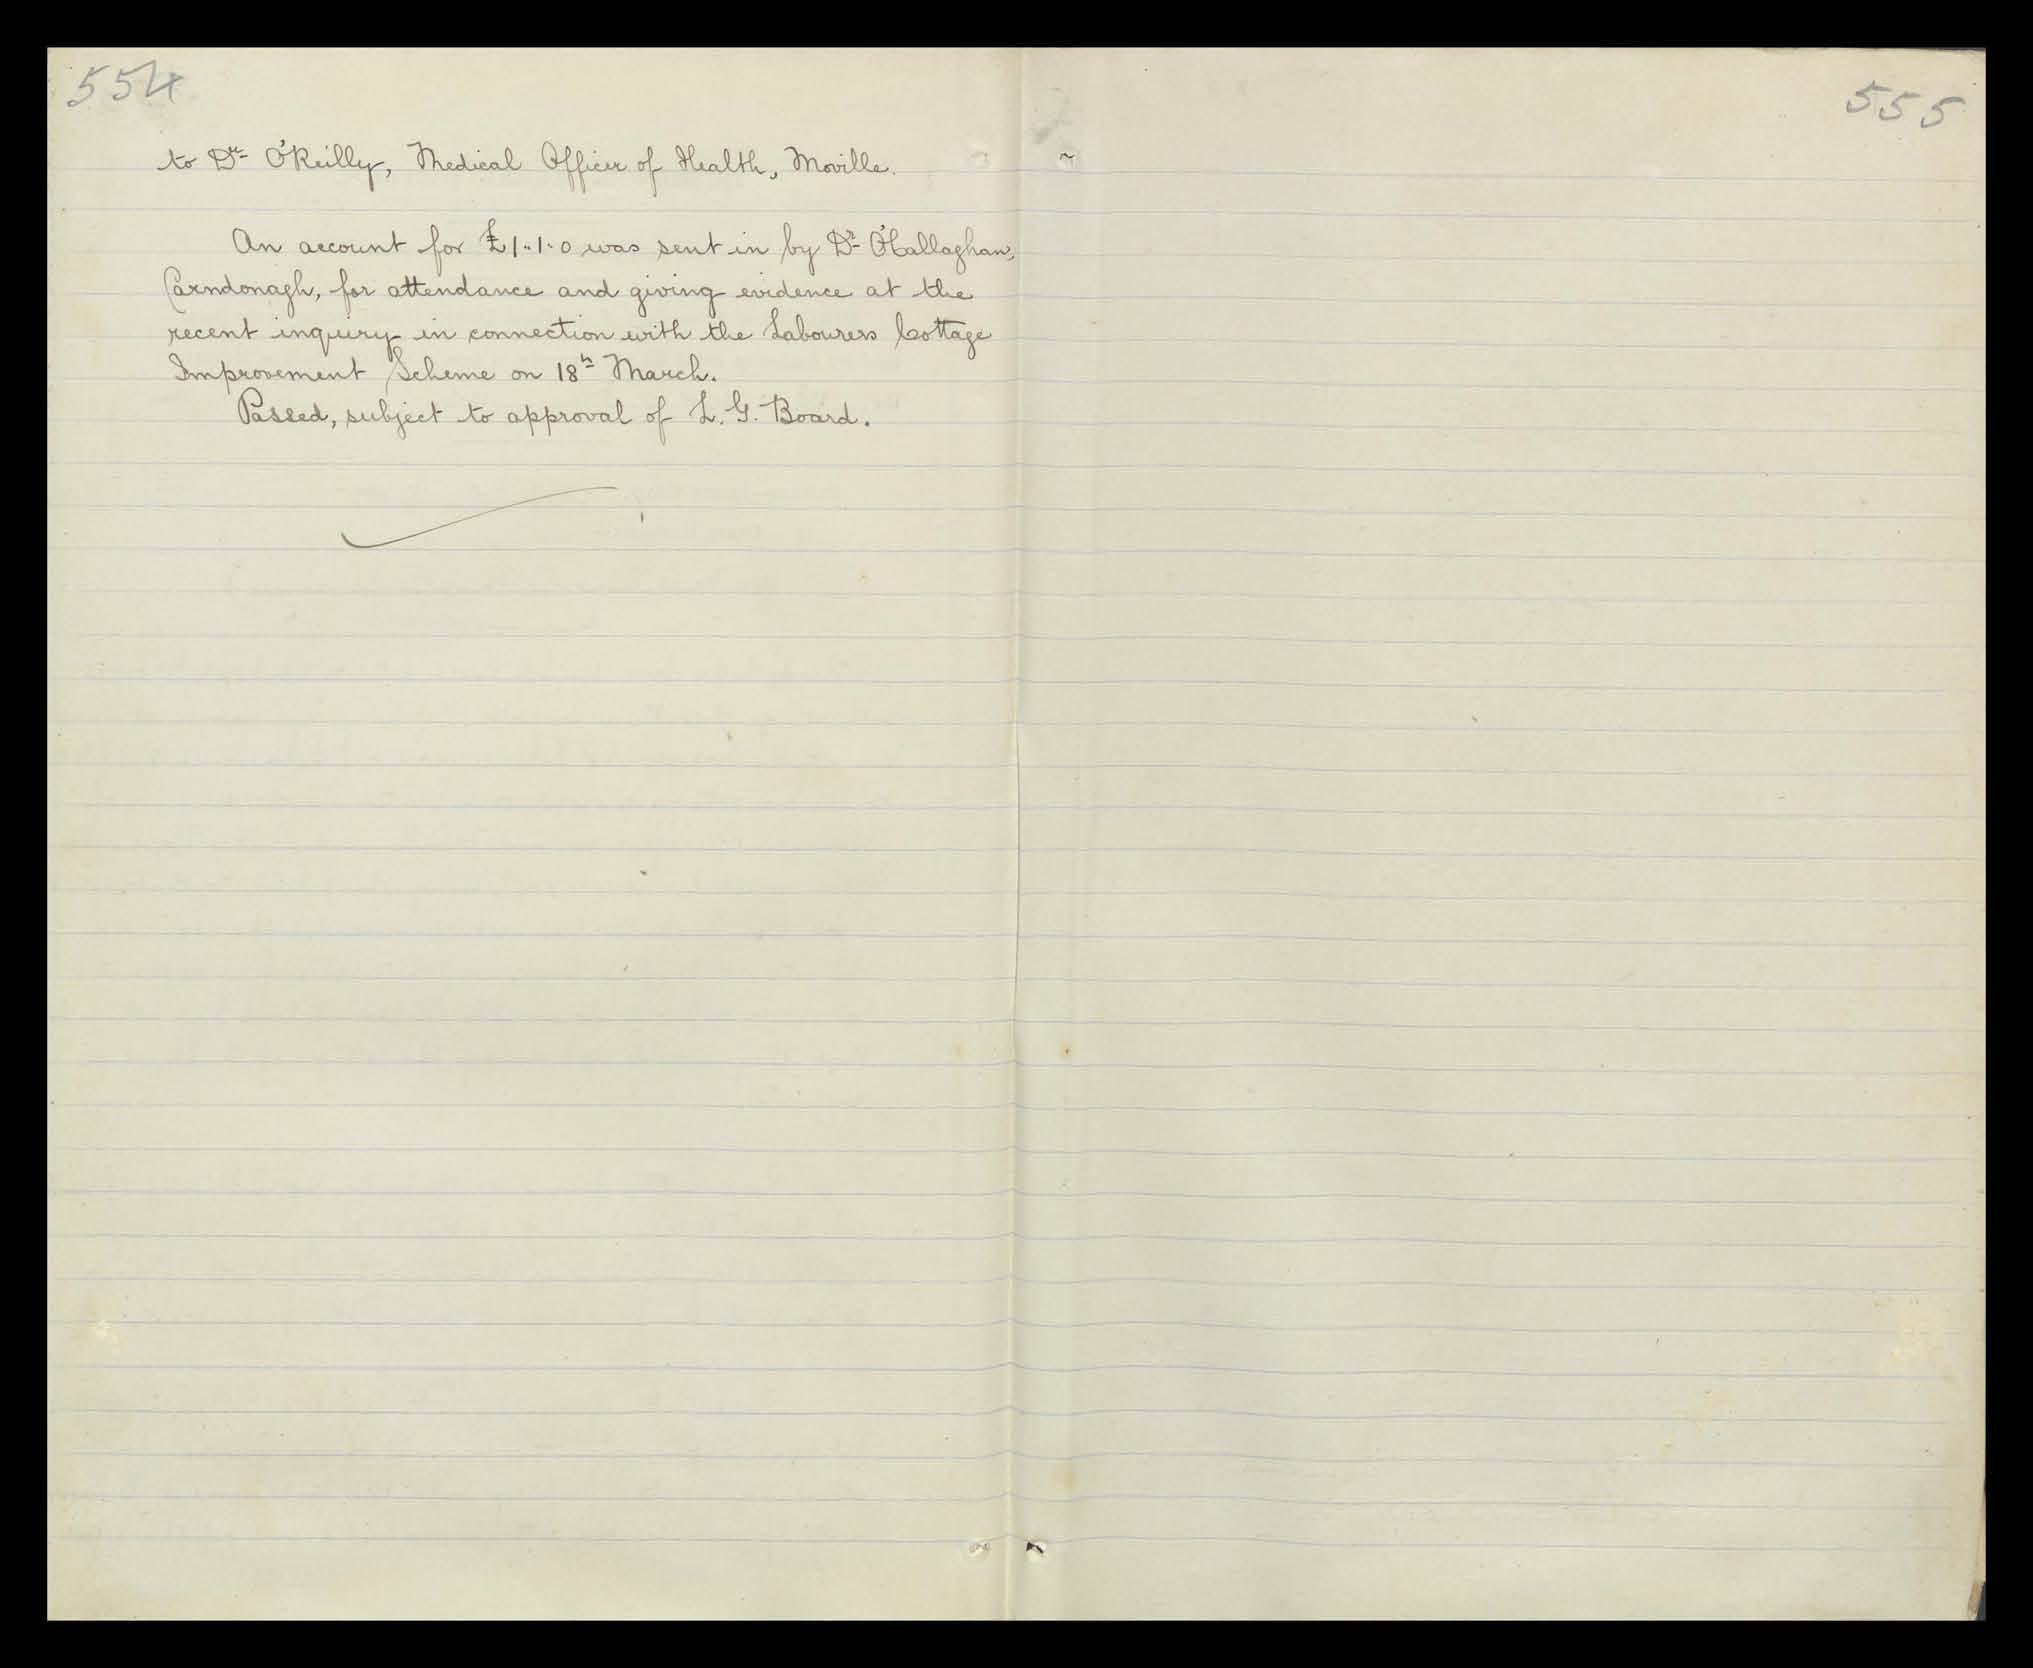 554
to Dr. O'Reilly, Medical Officer of Health, Moville.
An account for £1..1..0 was sent in by Dr. O'Callaghan,
Carndonagh, for attendance and giving evidence at the
recent inquiry in connection with the Labourers Cottage
Improvement Scheme on 18th March.
Passed, subject to approval of L. G. Board.
555